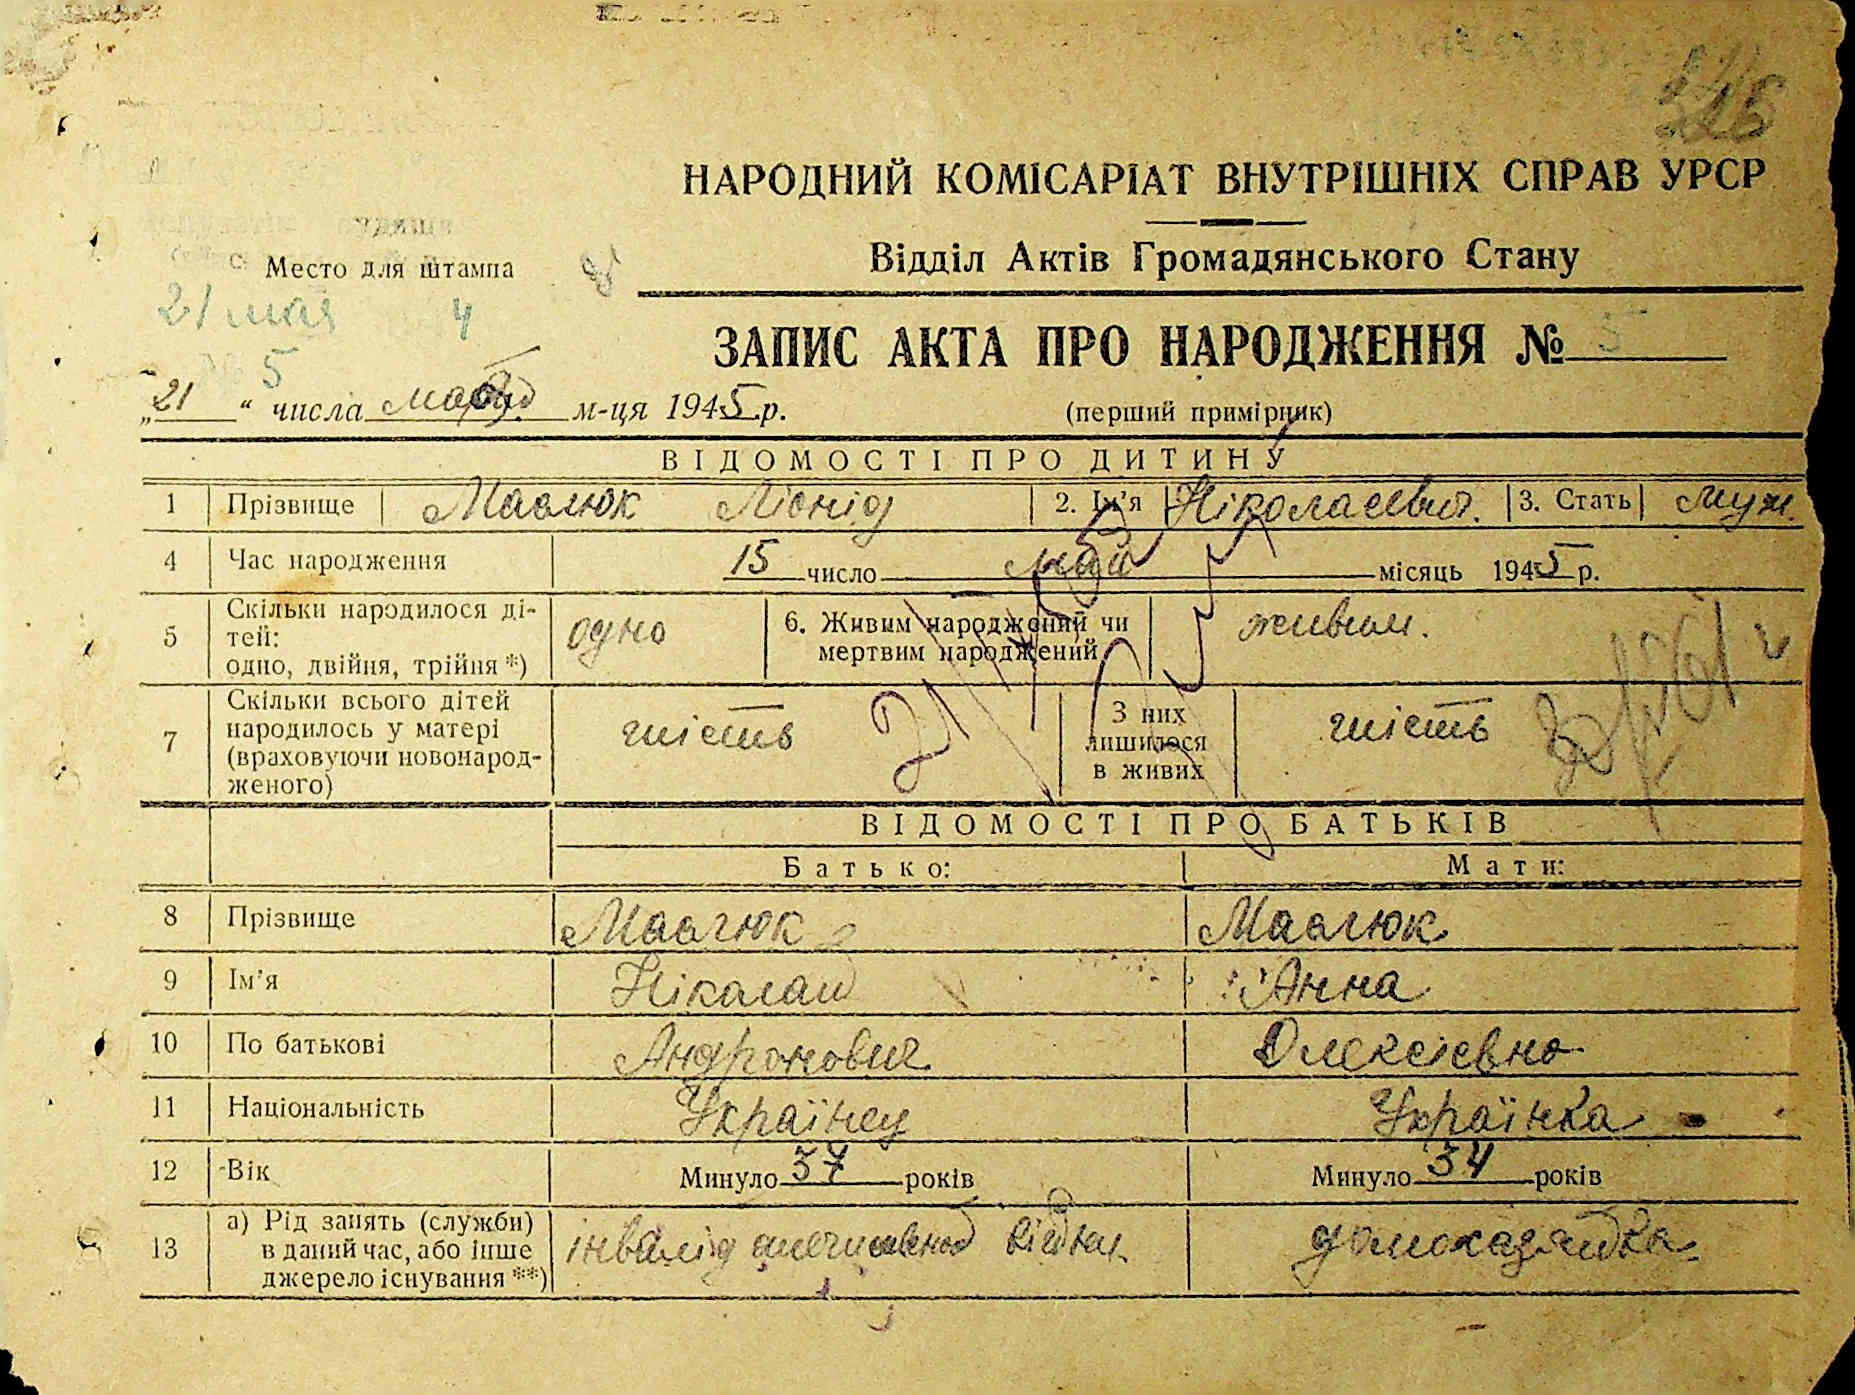 НАРОДНИЙ КОМІСАРІАТ ВНУТРІШНІХ СПРАВ УРСР
Відділ Актів Громадянського Стану
Место для штампа
21 мая 4
№ 5
ЗАПИС АКТА ПРО НАРОДЖЕННЯ № 5
„21“ числа м-ця 1945 р. (перший примірник)
ВІДОМОСТІ ПРО ДИТИНУ
1 Прізвище Маслюк Ліонід 2. Ім’я Ніколаевич. 3. Стать Муж.
4 Час народження 15 число май місяць 1945 р.
5 Скільки народилося ді-
тей:
одно, двійня, трійня *) одно 6. Живим народжений чи
мертвим народжений живим.
7 Скільки всього дітей
народилось у матері
(враховуючи новонарод-
женого) шість З них
лишилося
в живих шість
ВІДОМОСТІ ПРО БАТЬКІВ
Батько: Мати:
8 Прізвище Маслюк Маслюк
9 Ім’я Ніколай Анна
10 По батькові Андронович Олексієвна
11 Національність Українец Українка
12 Вік Минуло 37 років Минуло 34 років
13 а) Рід занять (служби)
в даний час, або інше
джерело існування **) інвалід отечественой війни домохазяйка